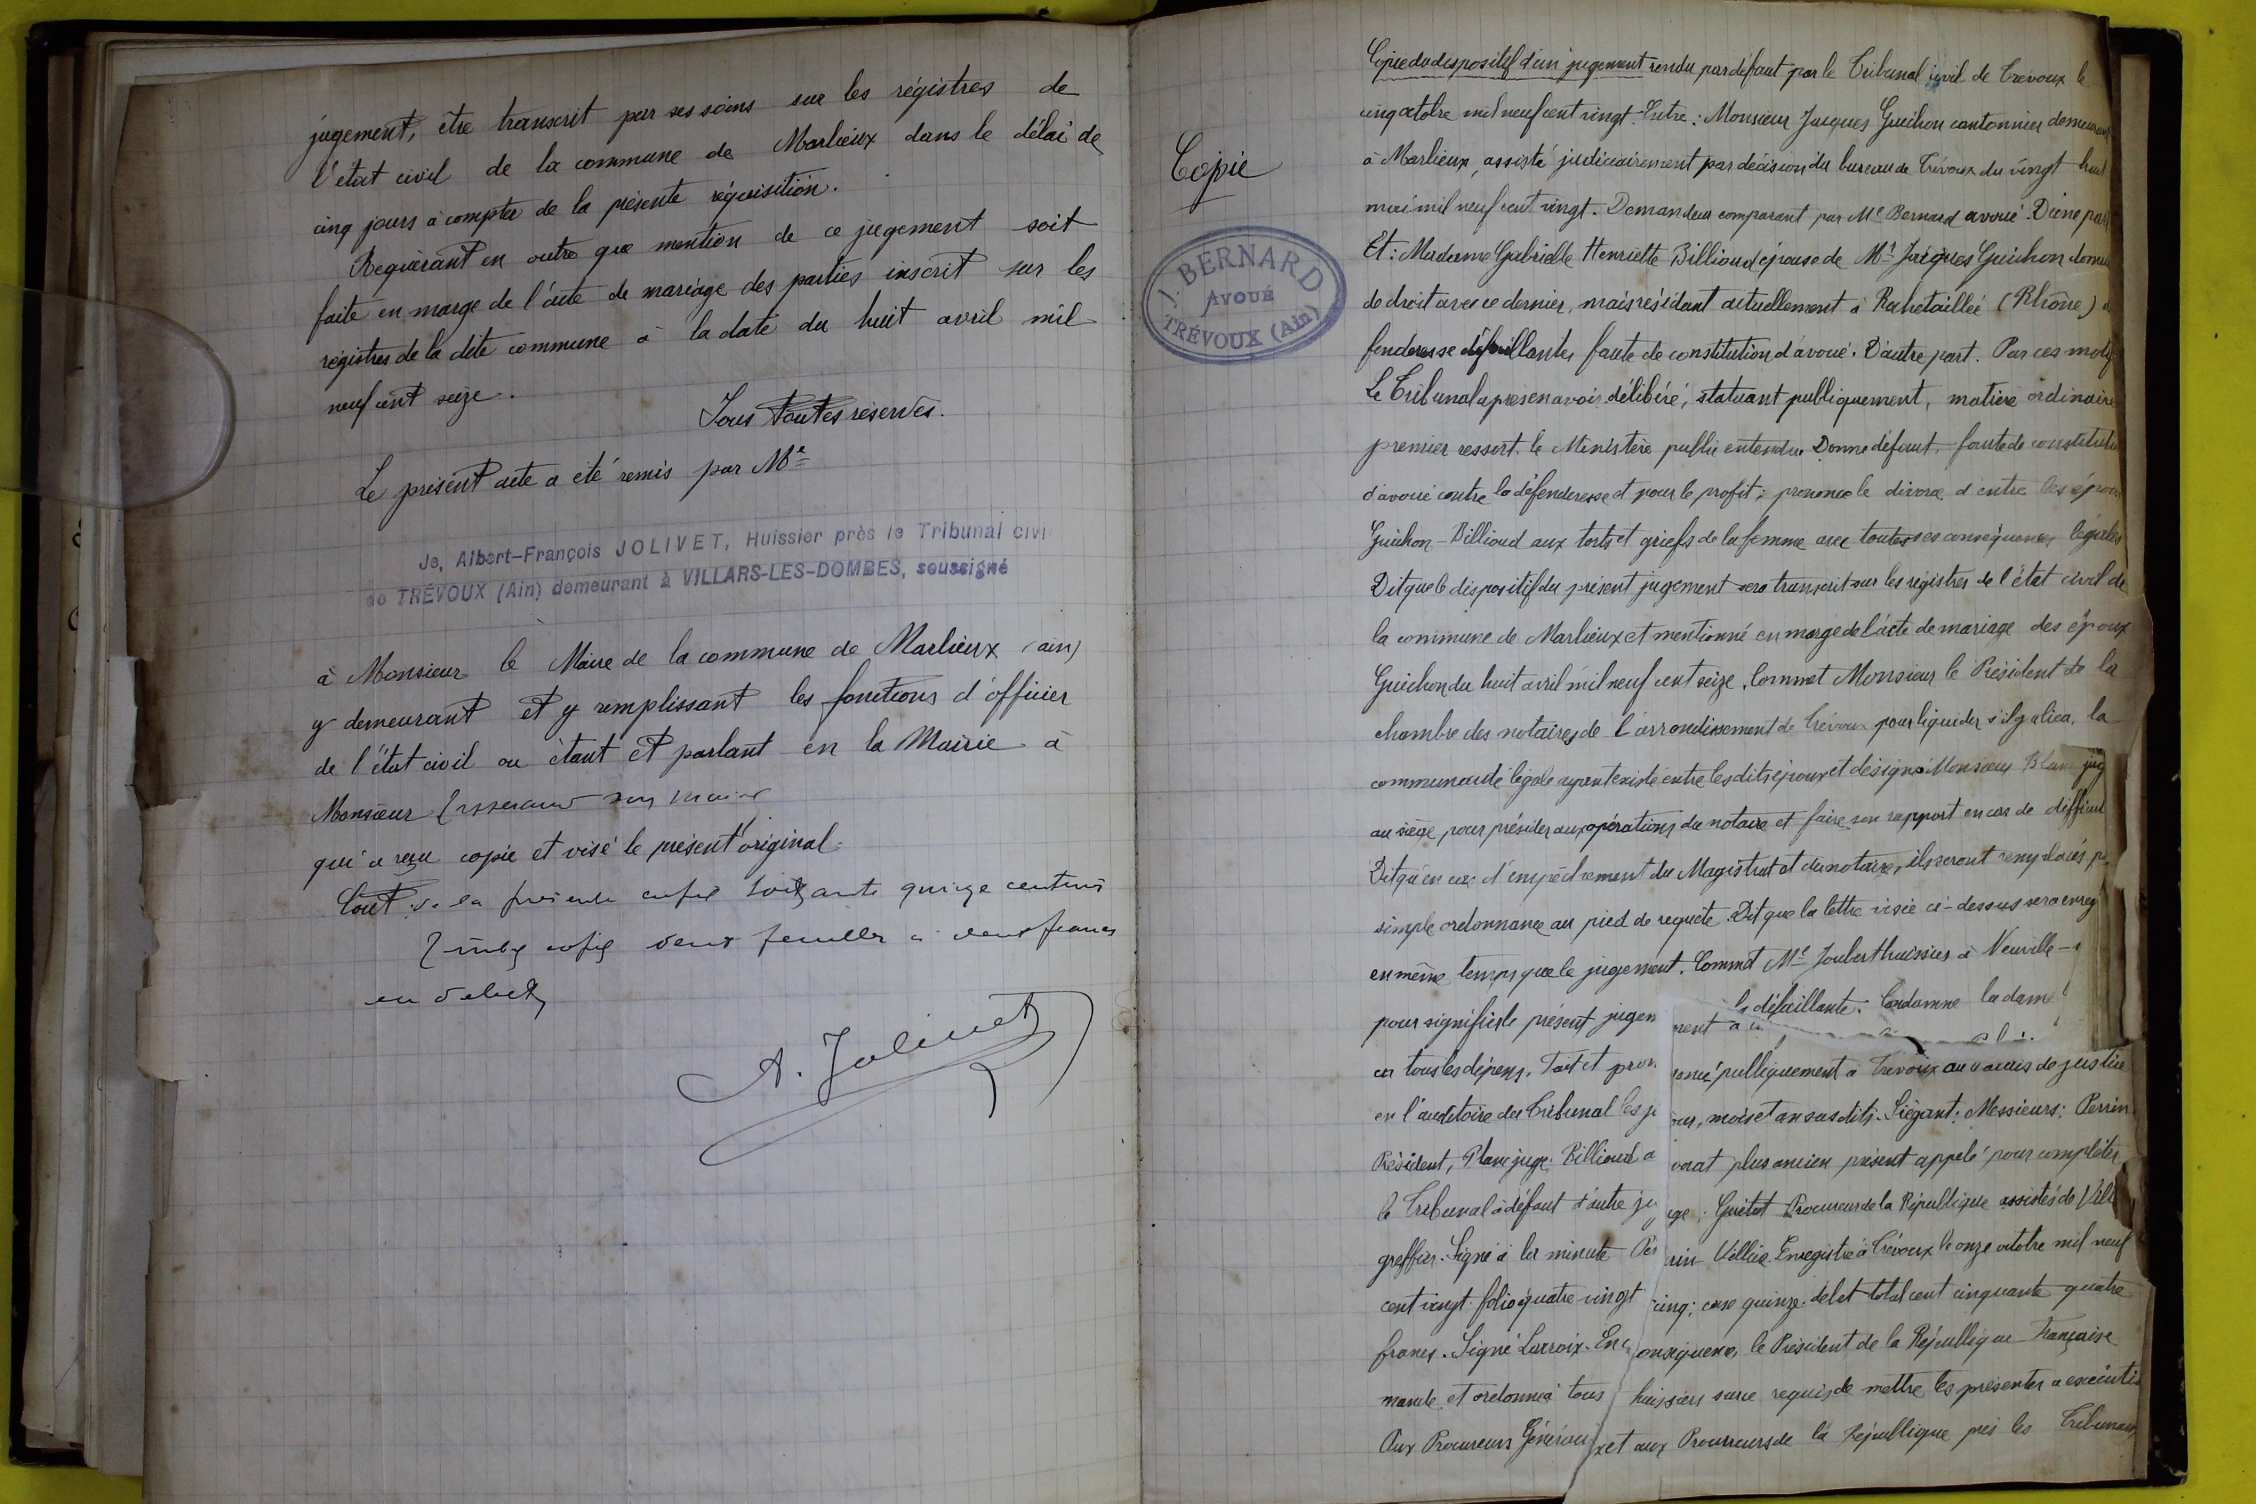 jugement, être transcrit par ses soins sur les régistres de
l'état civil de la commune de Marlieux dans le délai de
cinq jours à compter de la présente réquisition.
Requérant en outre que mention de ce jugement soit
faite en marge de l'acte de mariage des parties inscrit sur les
régistres de la dite commune à la date du huit avril mil
neuf cent seize.
Sous toutes réserves.
Le présent acte a été remis par Me
Je, Albert-François JOLIVET, Huissier près le Tribunal civi
de TRÉVOUX (Ain) demeurant à VILLARS-LES-DOMBES, soussigné
à Monsieur le Maire de la commune de Marlieux (ain)
y demeurant et y remplissant les fonctions d'officier
de l'état civil ou étant et parlant en la Mairie à
Monsieur
qui a reçu copie et visé le présent original.
Cout de la présente copie soixante quinze centimes
copie deux feuilles à deux francs
en debet
A. Jolivet
Copie
J. BERNARD
AVOUÉ
TRÉVOUX (Ain)
Copie du dispositif d'un jugement rendu par défaut par le Tribunal civil de Trévoux le
cinq octobre mil neuf cent vingt. Entre : Monsieur Jacques Guichon cantonnier demeurant
à Marlieux, assisté judiciairement par décision du bureau de Trévoux du vingt huit
mai mil neuf cent vingt. Demandeur comparant par Me Bernard avoué. D'une part
Et : Madame Gabrielle Henriette Billioud épouse de Mr Jacques Guichon domici
de droit avec ce dernier, mais résidant actuellement à Rochetaillée (Rhône) dé
fenderesse défaillante, faute de constitution d'avoué. D'autre part. Par ces motifs
Le Tribunal après en avoir délibéré, statuant publiquement, matière ordinaire
premier ressort. le Ministère public entendu. Donne défaut, faute de constitution
d'avoué contre la défenderesse et pour le profit ; prononce le divorce d'entre les époux
Guichon - Billioud aux torts et griefs de la femme avec toutes ses conséquences légales
Dit que le dispositif du présent jugement sera transcrit sur les régistres de l'état civil de
la commune de Marlieux et mentionné en marge de l'acte de mariage des époux
Guichon du huit avril mil neuf cent seize. Commet Monsieur le Président de la
chambre des notaires de l'arrondissement de Trévoux pour liquider s'il y a lieu, la
communauté légale ayant existé entre les dits époux et désigne Monsieur Blanc jug
au siège pour présider aux opérations du notaire et faire son rapport en cas de difficul
Dit qu'en cas d'empêchement du Magistrat et du notaire, ils seront remplacés pa
simple ordonnance au pied de requête. Dit que la lettre visée ci-dessus sera enreg
en même temps que le jugement. Commet Me Joubert huissier à Neuville-
pour signifier le présent jugement à la défaillante. Condamne la dame
en tous les dépens. Fait et prononcé publiquement à Trévoux au palais de justice
en l'auditoire du Tribunal les jour, mois et an susdits. Siégant : Messieurs : Perrin
Président, Blanc juge. Billioud avocat plus ancien présent appelé pour compléter
le Tribunal à défaut d'autre juge ; Guitot Procureur de la République assistés de Villi
greffier. Signé à la minute Perrin Villie. Enregistré à Trévoux le onze octobre mil neuf
cent vingt folio quatre vingt cinq ; case quinze. debet total cent cinquante quatre
francs. Signé Larroix. En conséquence, le Président de la République Française
mande et ordonne à tous huissiers sur ce requis de mettre les présentes à exécutio
Aux Procureurs Généraux et aux Procureurs de la République près les Tribunaux